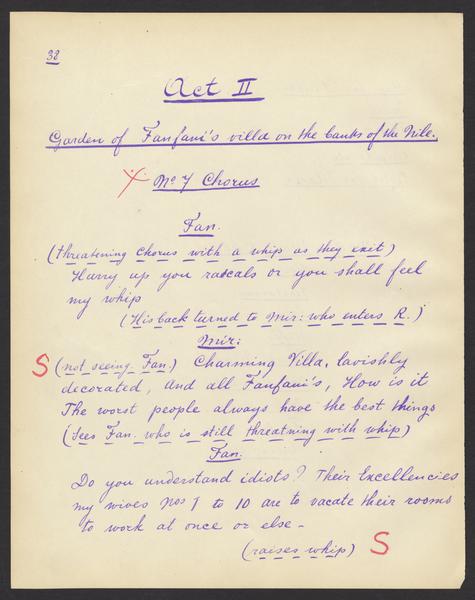 38
Act II
Garden of Fanfani's villa on the banks of the Nile.
No 7 Chorus
Fan.
(threatening Chorus with a whip as they exit)
Hurry up you rascals or you shall feel
my whip
(His back turned to Mir: who enters R.)
Mir:
S (not seeing Fan.) Charming Villa, lavishly
decorated, and all Fanfani's, How is it
The worst people always have the best things
(Sees Fan. who is still threatning with whip)
Fan:
Do you understand idiots? Their Excellencies
my wives Nos 1 to 10 are to vacate their rooms
to work at once or else -
(raises whip) S